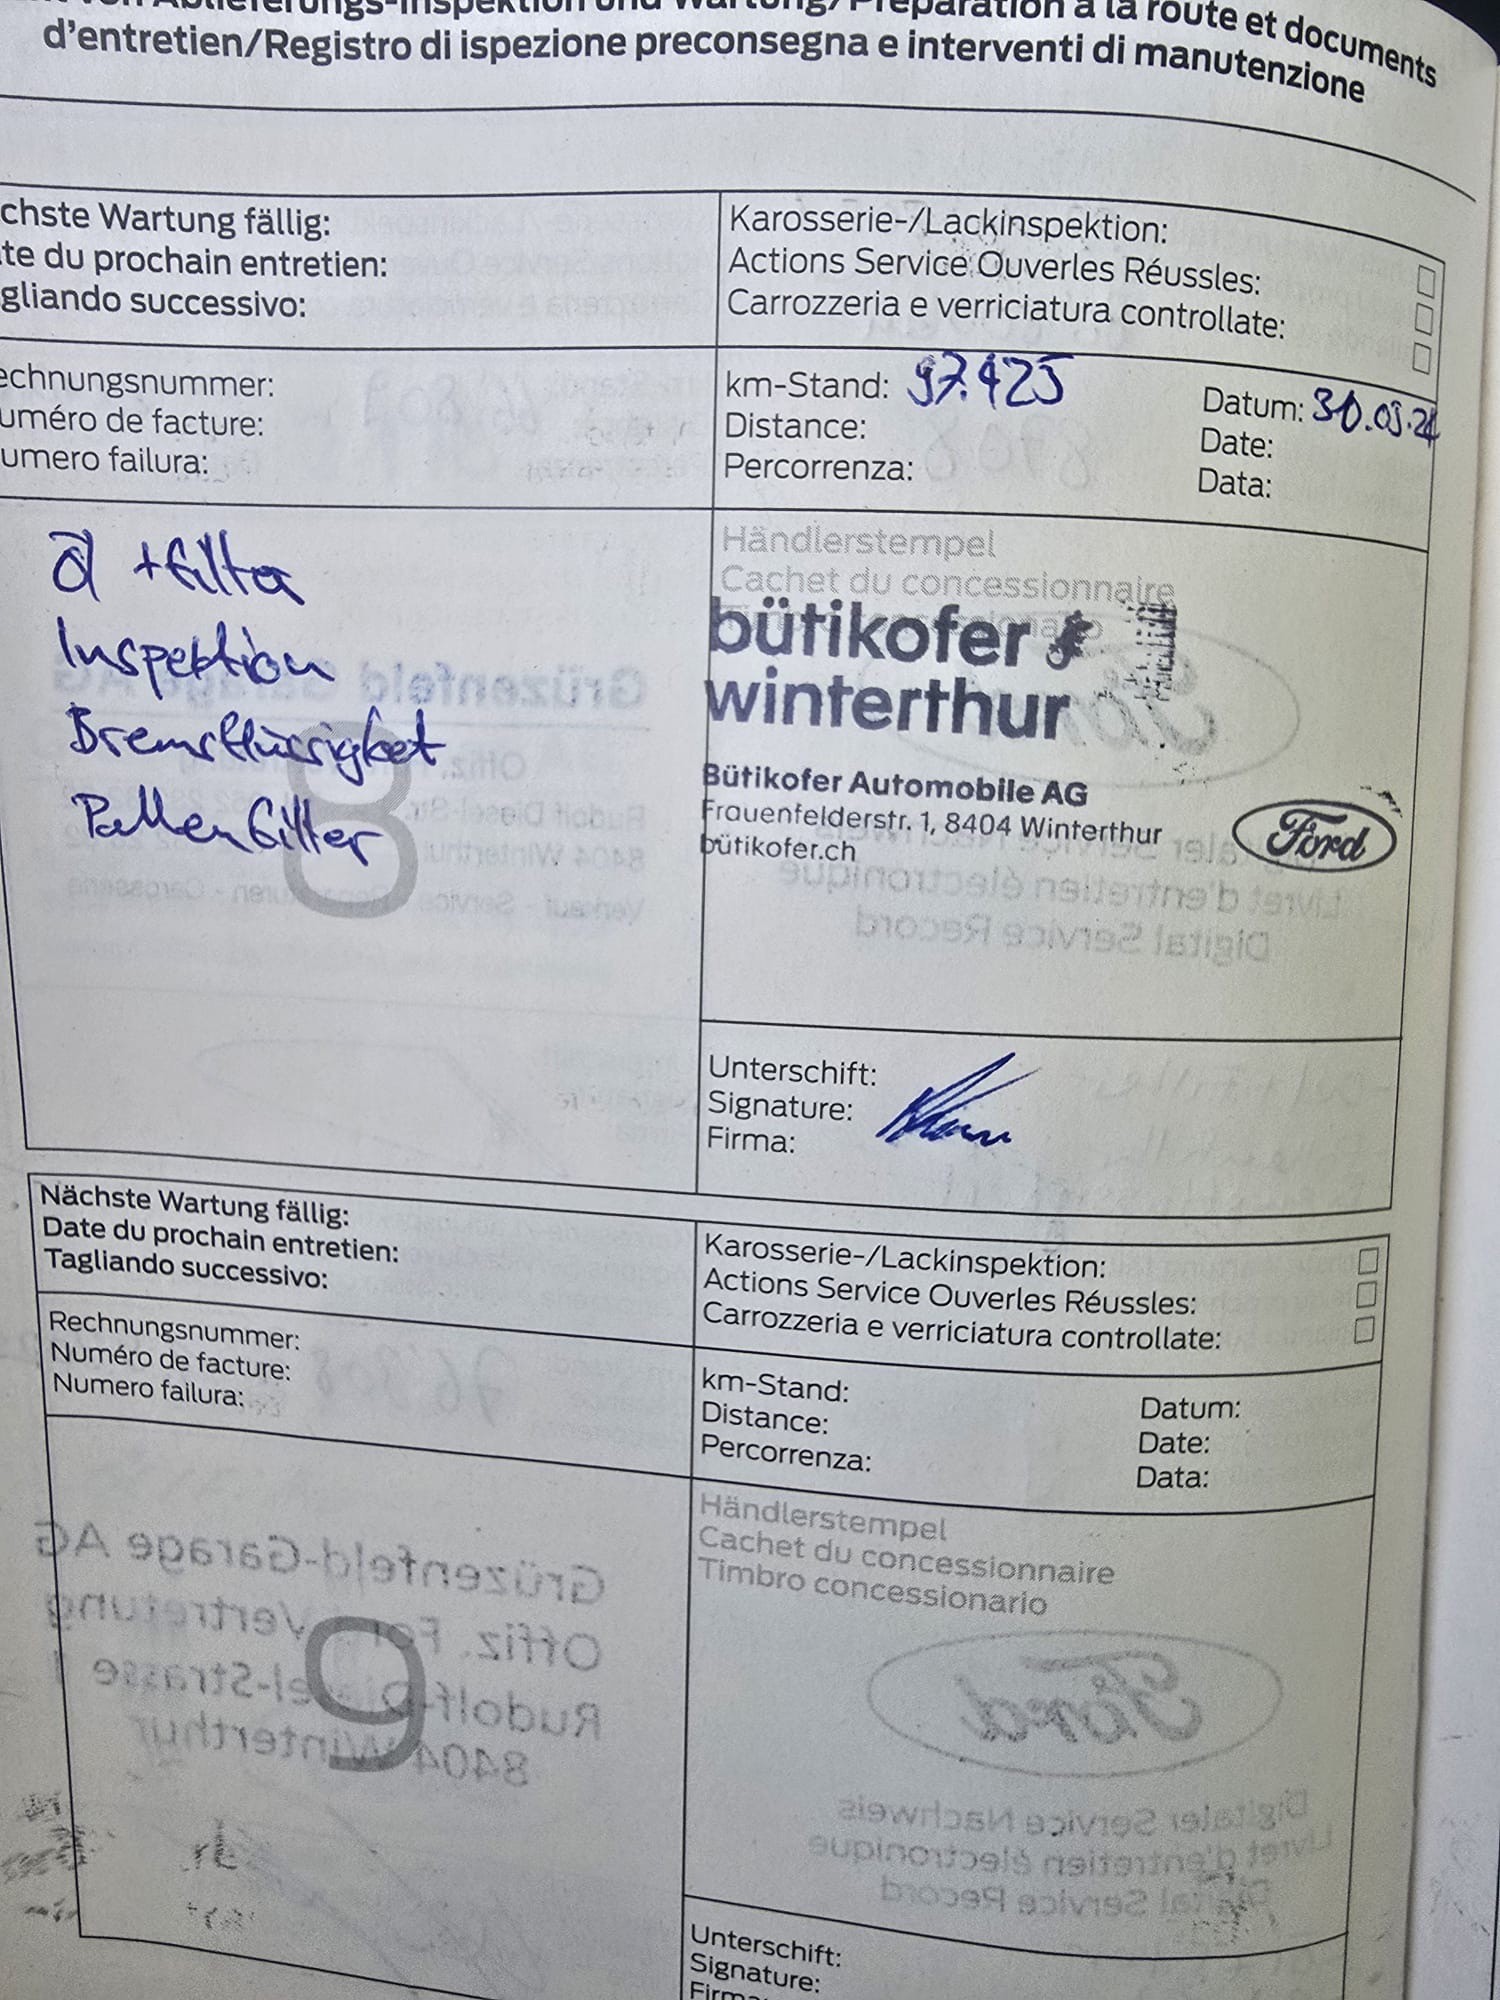 von Ablieferungs-Inspektion und Wartung/Préparation à la route et documents
d'entretien/Registro di ispezione preconsegna e interventi di manutenzione
chste Wartung fällig:
te du prochain entretien:
gliando successivo:
Karosserie-/Lackinspektion:
Actions Service Ouverles Réussles:
Carrozzeria e verriciatura controllate:
echnungsnummer:
uméro de facture:
umero failura:
km-Stand: 97.425
Distance:
Percorrenza:
Datum: 30.05.24
Date:
Data:
Öl + Filter
Inspektion
Bremsflüssigkeit
Pollenfilter
8
Händlerstempel
Cachet du concessionnaire
Timbro concessionario
bütikofer
winterthur
Bütikofer Automobile AG
Frauenfelderstr. 1, 8404 Winterthur
bütikofer.ch
Ford
Unterschift:
Signature:
Firma:
Nächste Wartung fällig:
Date du prochain entretien:
Tagliando successivo:
Karosserie-/Lackinspektion:
Actions Service Ouverles Réussles:
Carrozzeria e verriciatura controllate:
Rechnungsnummer:
Numéro de facture:
Numero failura:
km-Stand:
Distance:
Percorrenza:
Datum:
Date:
Data:
9
Händlerstempel
Cachet du concessionnaire
Timbro concessionario
Unterschift:
Signature:
Firma: